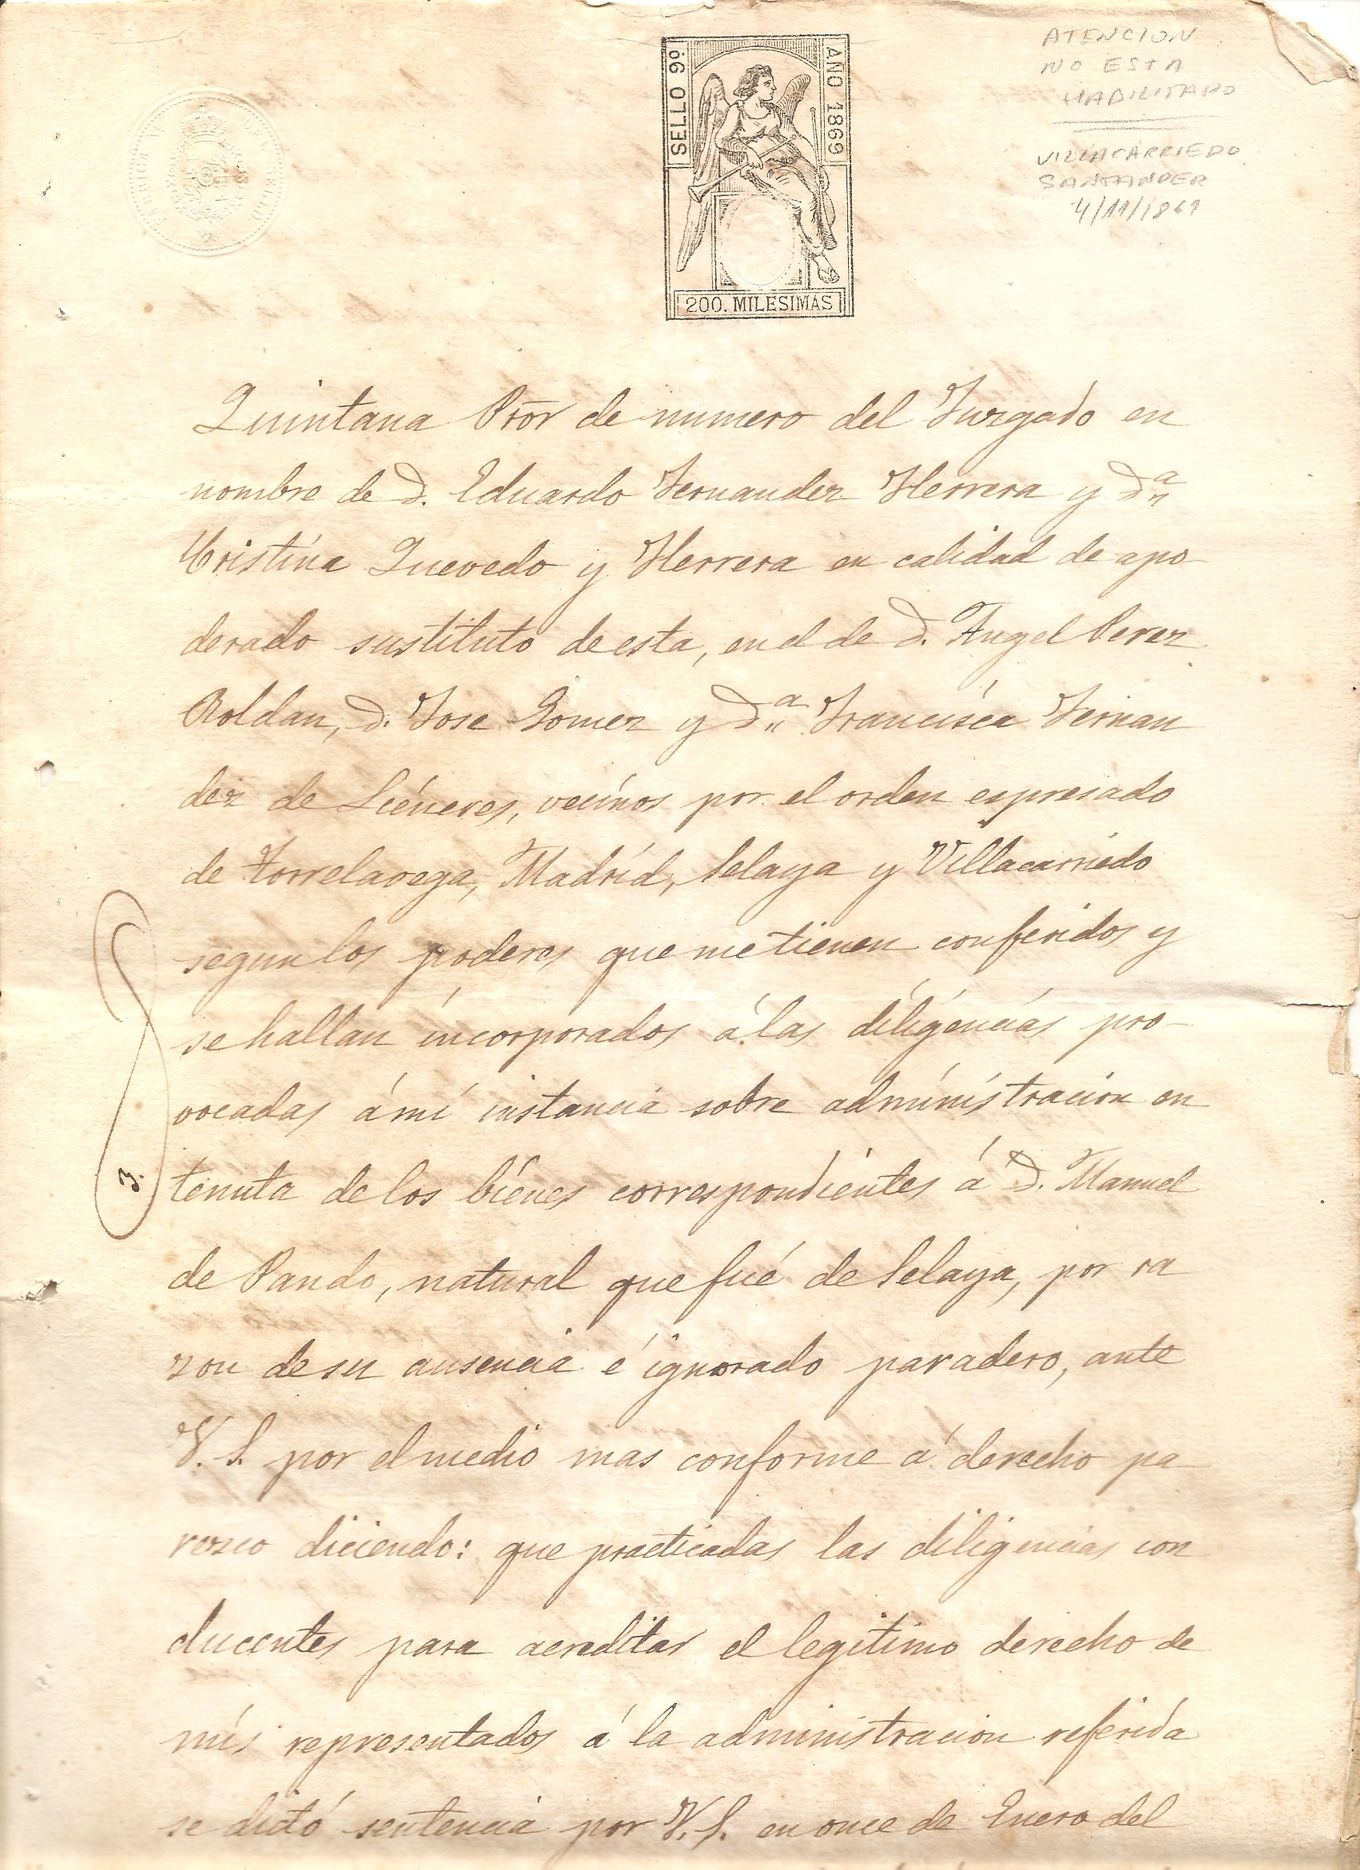 SELLO 9º
AÑO 1869
200. MILESIMAS
ATENCION
NO ESTA
HABILITADO
VILLACARRIEDO
SANTANDER
4/11/1869
Quintana Pror de numero del Juzgado en
nombre de D. Eduardo Fernandez Herrera y Dª
Cristina Quevedo y Herrera en calidad de apo
derado sustituto de esta, en el de D. Angel Perez
Roldan, D. Jose Gomez y Dª Francisca Fernan
dez de Liéneres, vecinos por el orden espresado
de Torrelavega, Madrid, Selaya y Villacarriedo
segun los poderes que me tienen conferidos y
se hallan incorporados á las diligencias pro-
vocadas á mi instancia sobre administracion en
tenuta de los bienes correspondientes á D. Manuel
de Pando, natural que fué de Selaya, por ra
zon de su ausencia é ignorado paradero, ante
V. S. por el medio mas conforme á derecho pa
rezco diciendo: que practicadas las diligencias con
ducentes para acreditar el legitimo derecho de
mis representados á la administracion referida
se dictó sentencia por V. S. en once de Enero del